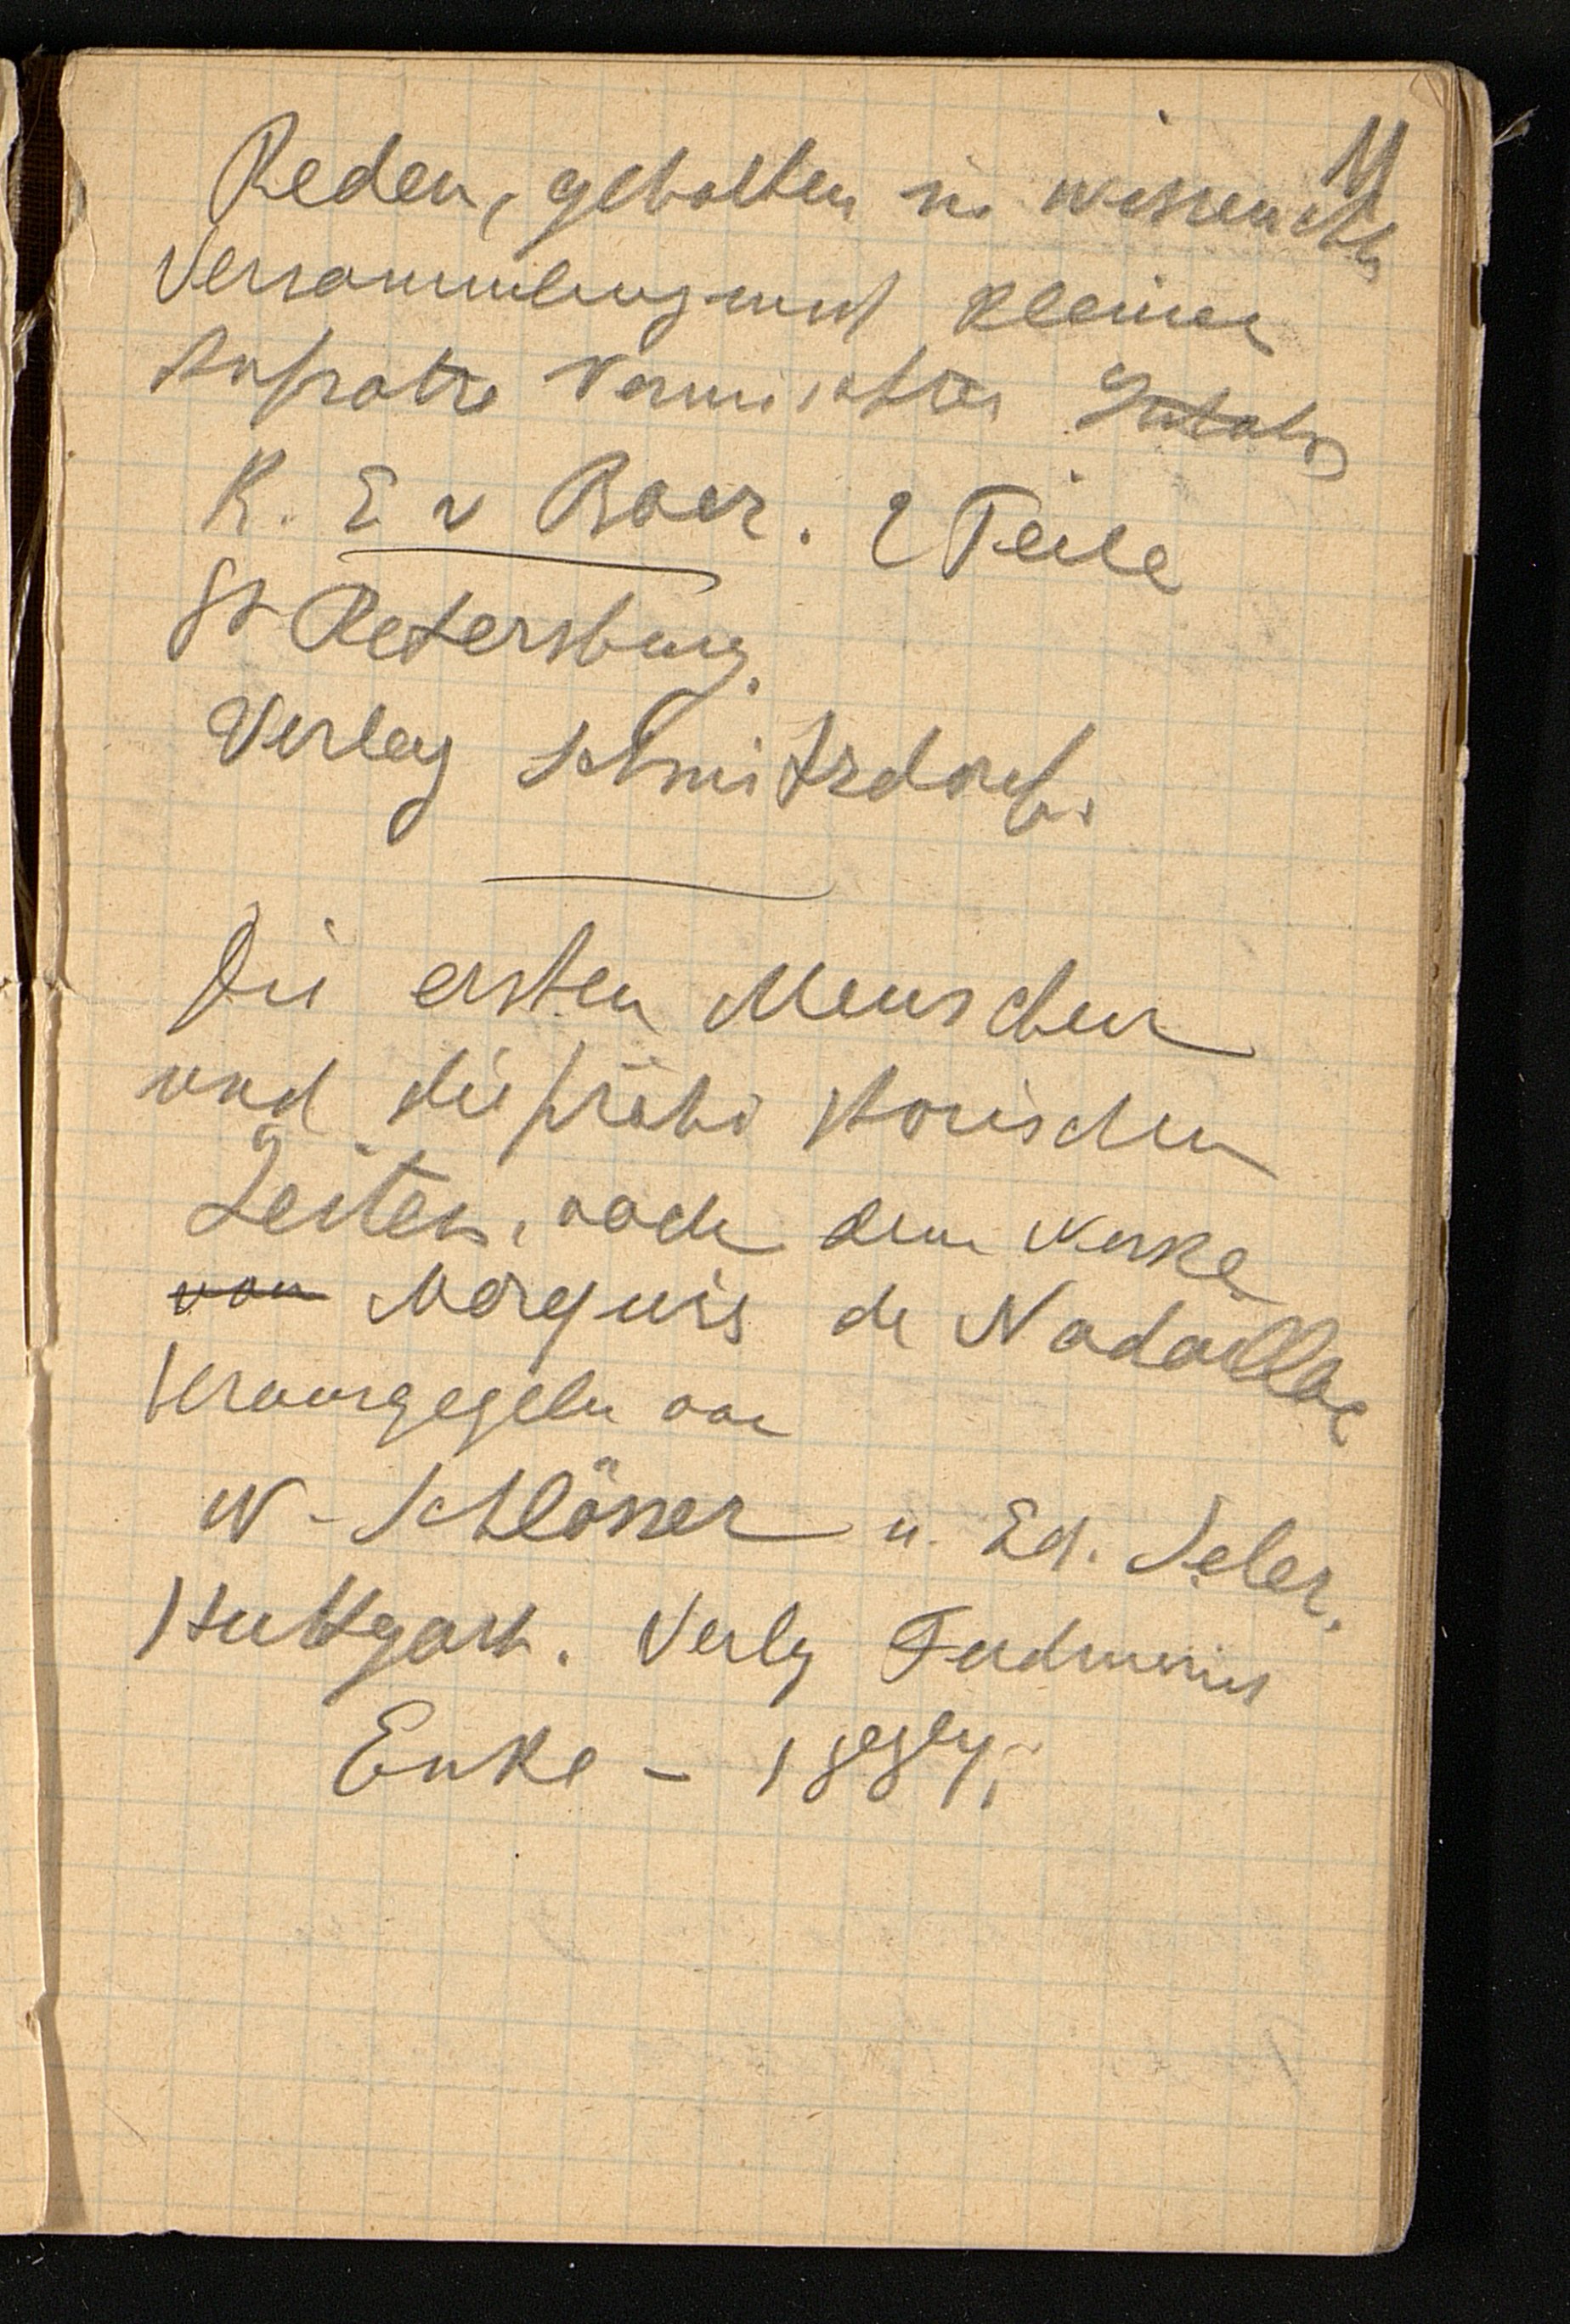 11
Reden, gehalten in wissensch
Versammlung und kleine
Aufsätze vermischten Inhalts
K. E v Baer. 2 Teile
St Petersburg.
Verlag Schmitzdorf.
Die ersten Menschen
und die prähistorischen
Zeiten, nach dem Werke
von Marquis de Nadaillac
Herausgegeben von
W. Schlösser u. Ed. Seler.
Stuttgart. Verlg Ferdinand
Enke - 1884.